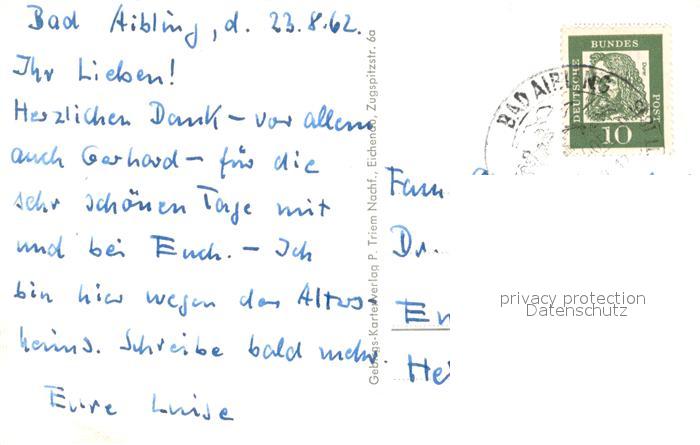 Bad Aibling, d. 23.8.62.
Ihr Lieben!
Herzlichen Dank – vor allem
auch Gerhard – für die
sehr schönen Tage mit
und bei Euch. – Ich
bin hier wegen des Alters-
heims. Schreibe bald mehr.
Eure Luise
Gebirgs-Kartenverlag P. Triem Nachf., Eichenau, Zugspitzstr. 6a
DEUTSCHE
BUNDES
POST
Dürer
10
BAD AIBLING
Fam.
Dr.
privacy protection
Datenschutz